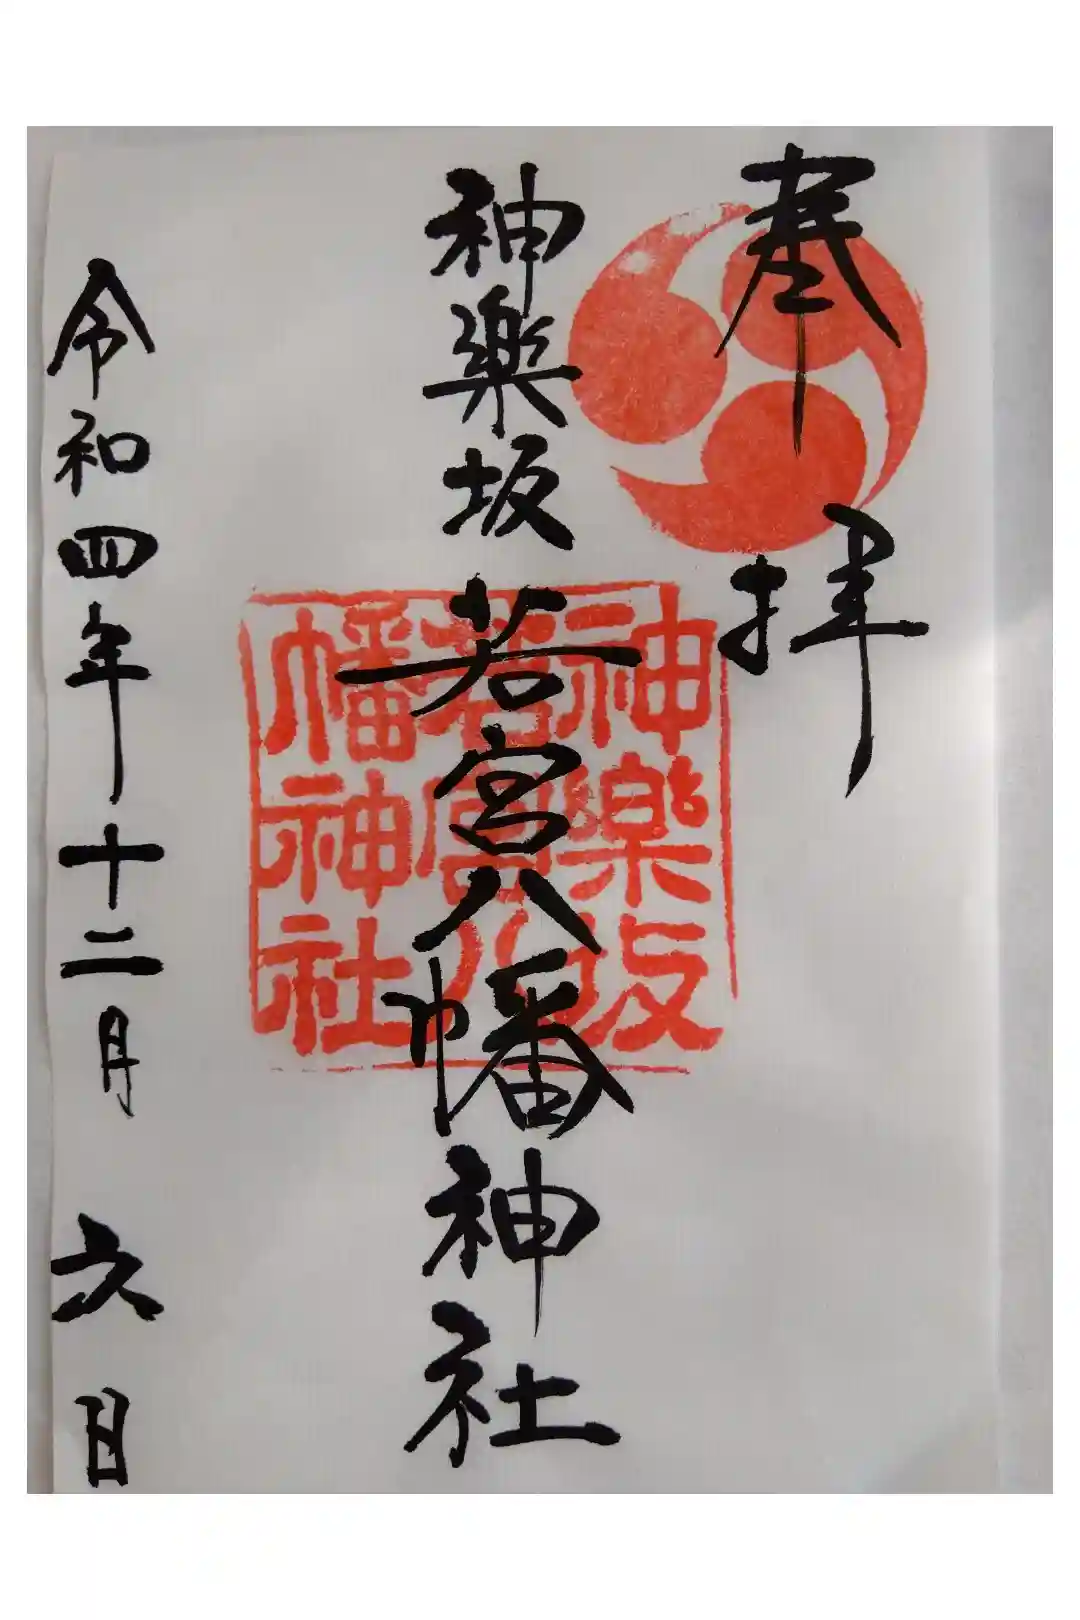 奉拝
神楽坂若宮八幡神社
神樂坂
若宮八
幡神社
令和四年十二月六日